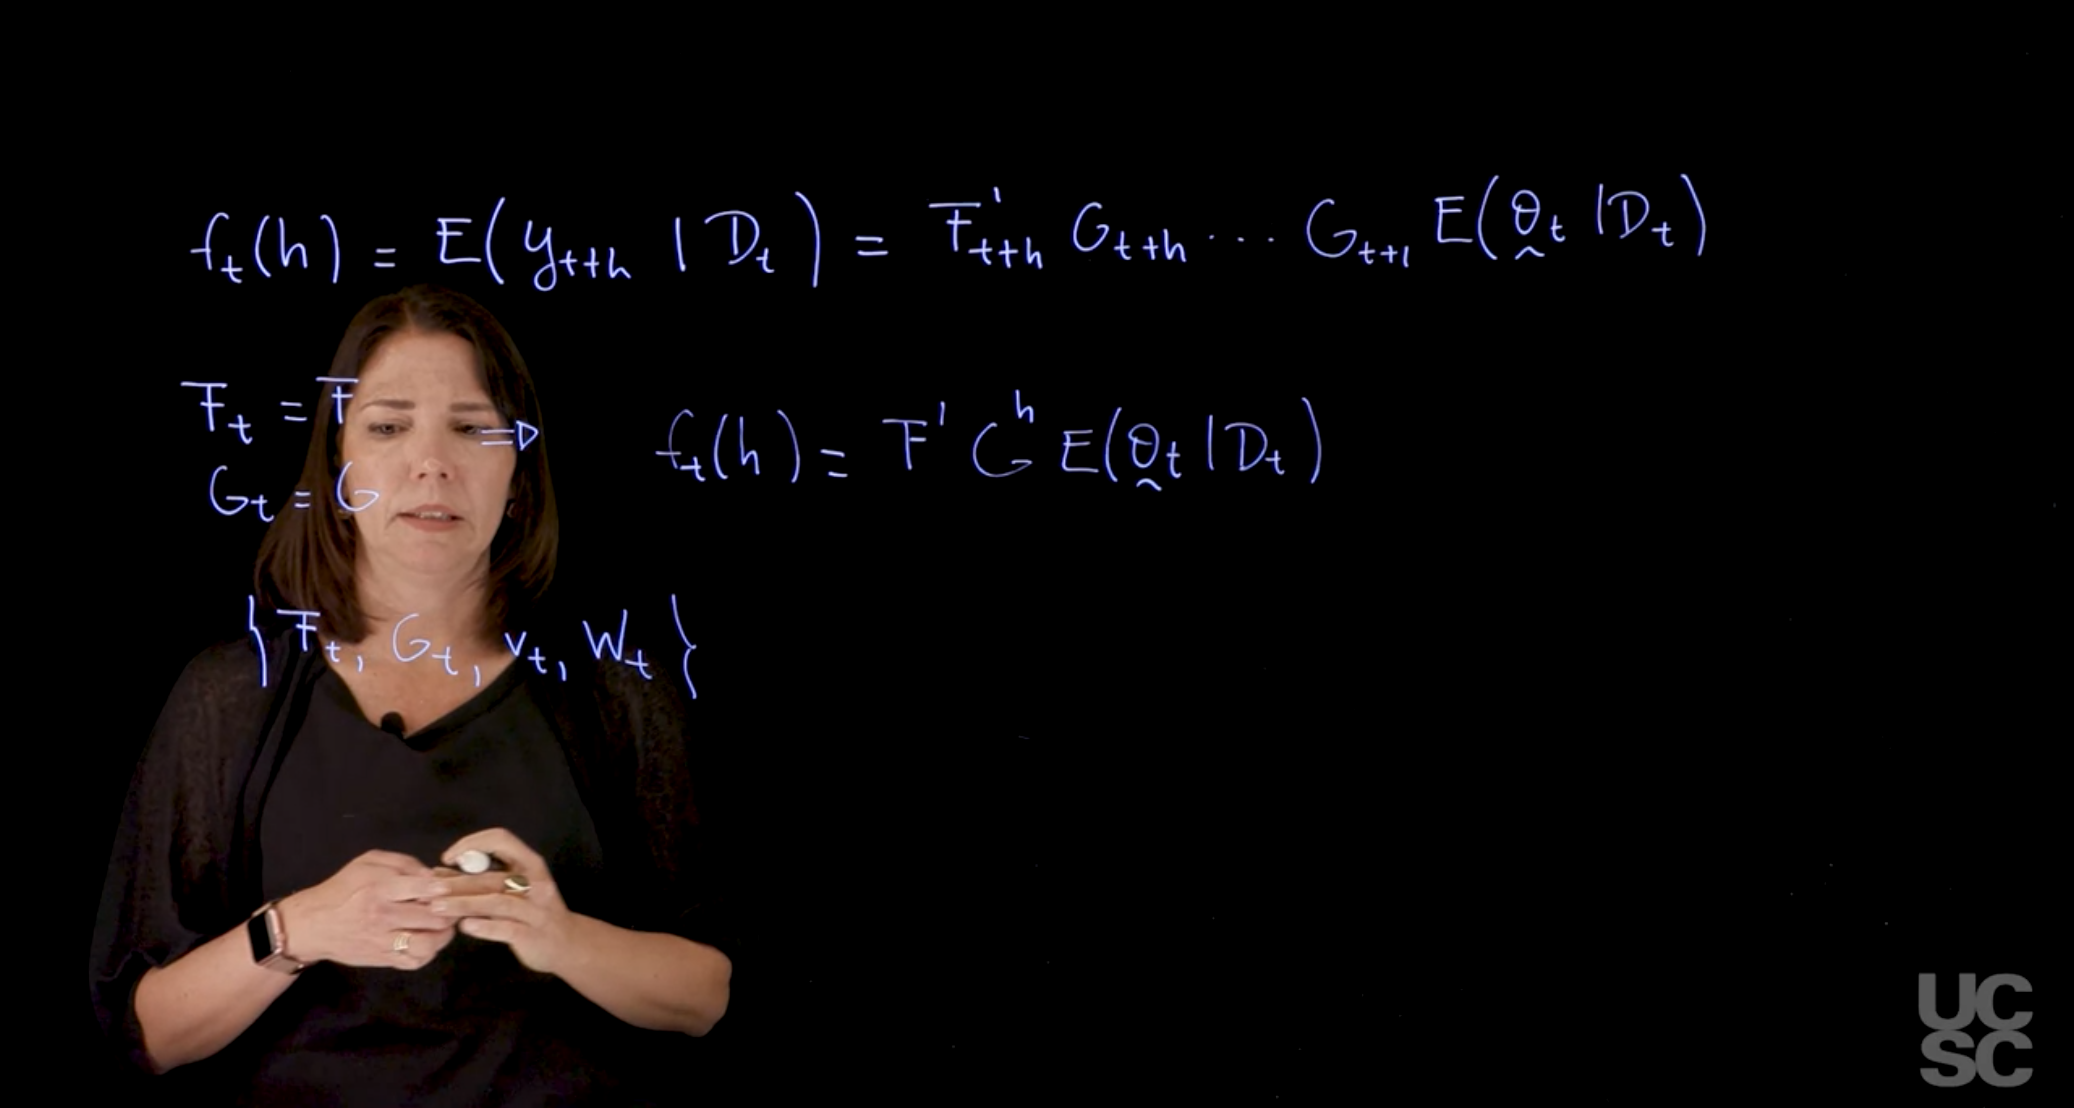 f_t(h) = E(y_{t+h} | D_t) = F'_{t+h} G_{t+h} ... G_{t+1} E(θ_t | D_t)
F_t = F
G_t = G
⇒ f_t(h) = F' G^h E(θ_t | D_t)
{F_t, G_t, v_t, W_t}
UC
SC